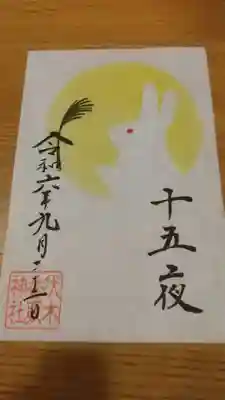 十五夜
令和六年九月二十一日
神社